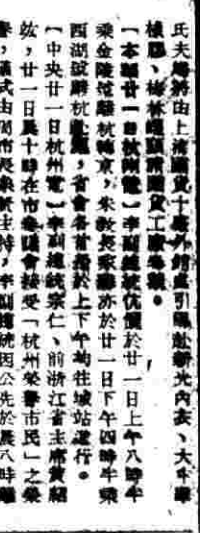 氏夫婦將由上海國貨十 引 赴新光內衣、大中華
橡膠、梅林 國貨工廠參觀。
【本報廿一日杭州電】李副總統伉儷於廿一日上午八時半
乘金陵號離杭轉京，朱教長家驊亦於廿一日下午四時半乘
西湖號離杭 ，省會各首長於上下午均往城站送行。
【中央廿一日杭州電】李副總統宗仁、前浙江省主席黃紹
竑，廿一日晨十時在市參議會接受「杭州榮譽市民」之榮
譽，儀式由 市長 主持，李副總統因公先於晨八時離